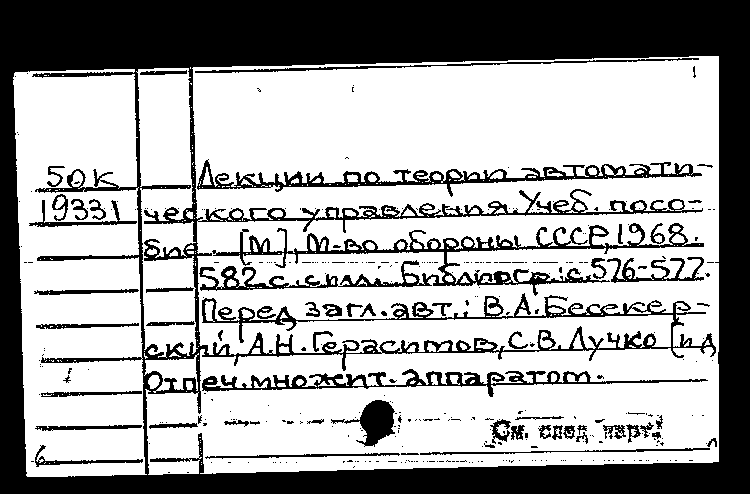 50К Лекции по теории автомати-
19331 ческого управления. Учеб. посо-
бие. [М], М-во обороны СССР, 1968.
582 с. с илл. Библиогр.: с. 576-577.
Перед загл. авт.: В.А. Бесекер-
ский, А.Н. Герасимов, С.В. Лучко [и д
Отпеч. множит. аппаратом.
См. след карт.
6